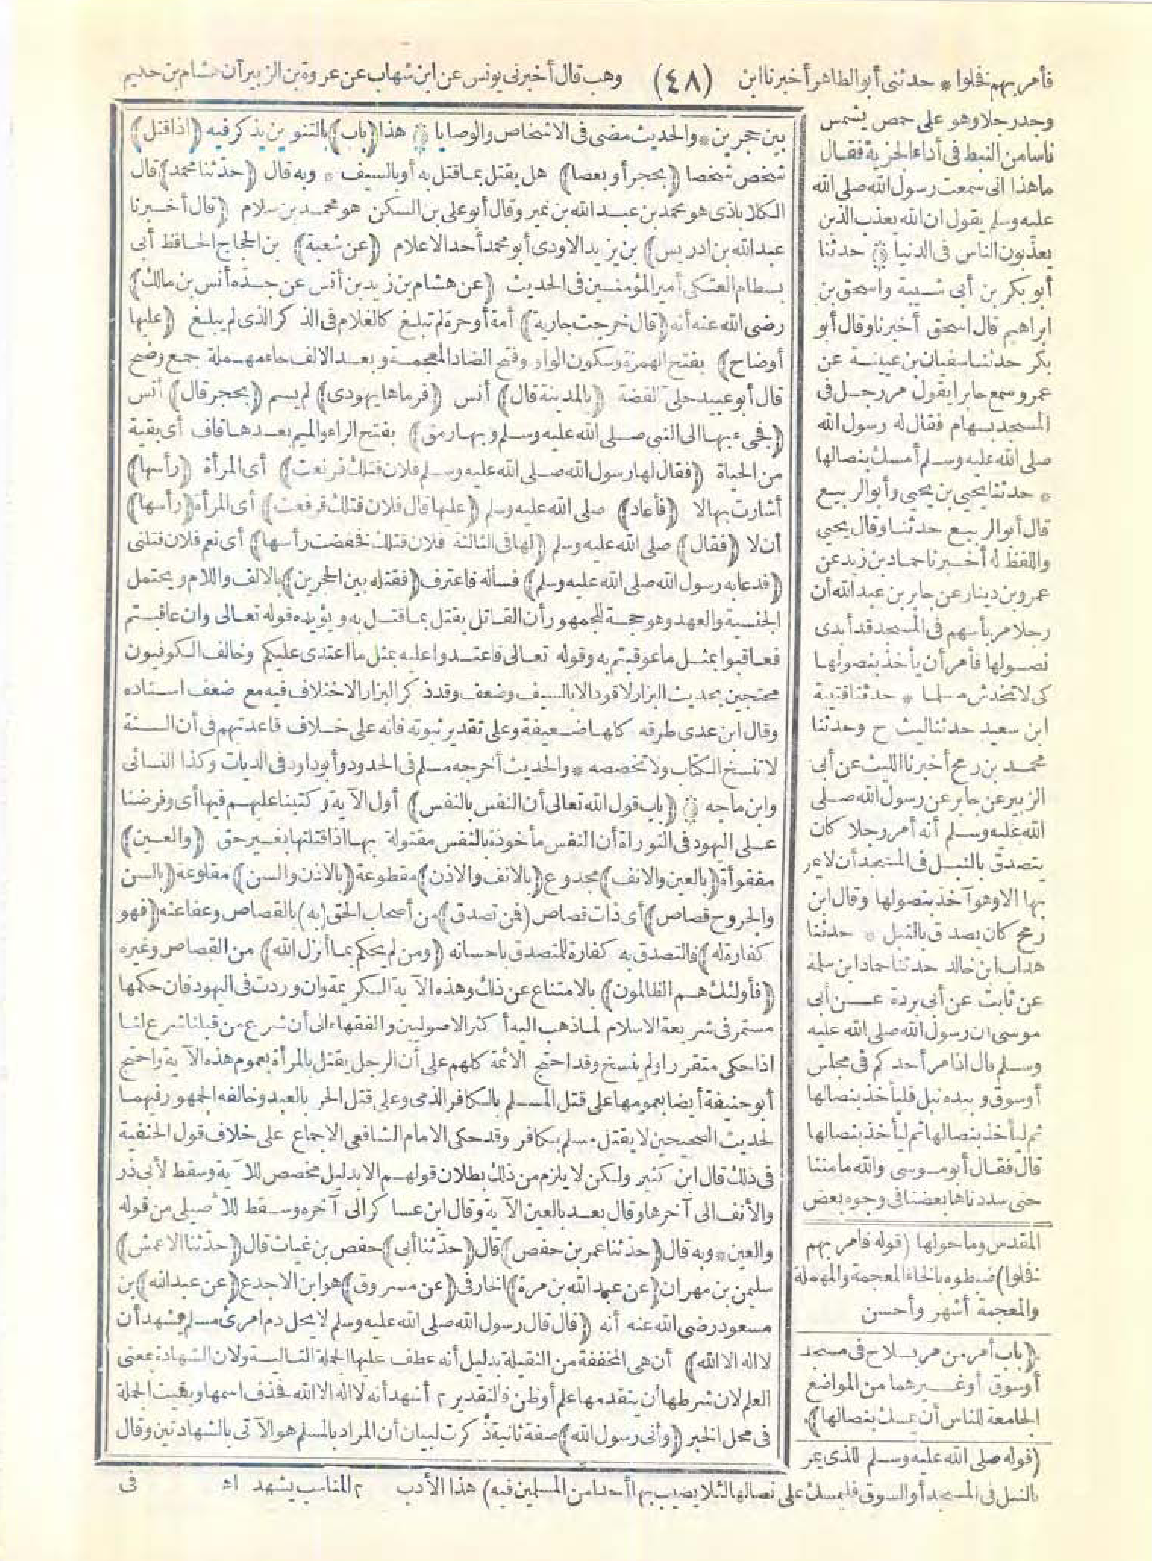 فأمر بهم فخلوا * حدثنى أبو الطاهر أخبرنا ابن (٤٨) وهب قال أخبرنى يونس عن ابن شهاب عن عروة بن الزبير أن هشام بن حكيم
وجد رجلا وهو على حمص يشمس
ناسا من النبط فى أداء الجزية فقال
ما هذا انى سمعت رسول الله صلى الله
عليه وسلم يقول ان الله يعذب الذين
يعذبون الناس فى الدنيا ۞ حدثنا
أبو بكر بن أبى شيبة واسحق بن
ابراهيم قال اسحق أخبرنا وقال أبو
بكر حدثنا سفيان بن عيينة عن
عمرو سمع جابرا يقول مر رجل فى
المسجد بسهام فقال له رسول الله
صلى الله عليه وسلم أمسك بنصالها
* حدثنا يحيى بن يحيى وأبو الربيع
قال أبو الربيع حدثنا وقال يحيى
واللفظ له أخبرنا حماد بن زيد عن
عمرو بن دينار عن جابر بن عبد الله أن
رجلا مر بأسهم فى المسجد قد أبدى
نصولها فأمر أن يأخذ بنصولها
كى لا تخدش مسلما * حدثنا قتيبة
ابن سعيد حدثنا ليث ح وحدثنا
محمد بن رمح أخبرنا الليث عن أبى
الزبير عن جابر عن رسول الله صلى
الله عليه وسلم أنه أمر رجلا كان
يتصدق بالنبل فى المسجد أن لا يمر
بها الا وهو آخذ بنصولها وقال ابن
رمح كان يصدق بالنبل * حدثنا
هداب ابن خالد حدثنا حماد ابن سلمة
عن ثابت عن أبى بردة عن أبى
موسى ان رسول الله صلى الله عليه
وسلم قال اذا مر أحدكم فى مجلس
أو سوق وبيده نبل فليأخذ بنصالها
ثم ليأخذ بنصالها ثم ليأخذ بنصالها
قال فقال أبو موسى والله ما متنا
حتى سددناها بعضنا فى وجوه بعض
المقدس وما حولها (قوله فأمر بهم
فخلوا) ضبطوه بالخاء المعجمة والمهملة
والمعجمة أشهر وأحسن
(باب أمر من مر بسلاح فى مسجد
أو سوق أو غيرهما من المواضع
الجامعة للناس أن يمسك بنصالها)
(قوله صلى الله عليه وسلم للذى يمر
بالنبل فى المسجد أو السوق فليمسك على نصالها لئلا يصيب بها أحدا من المسلمين فيه) هذا الأدب
بين حجرين * والحديث مضى فى الاشخاص والوصايا ۞ هذا (باب) بالتنوين يذكر فيه (اذا قتل)
شخص شخصا (بحجر أو بعصا) هل يقتل بما قتل به أو بالسيف * وبه قال (حدثنا محمد) قال
الكلاباذى هو محمد بن عبد الله بن نمير وقال أبو على بن السكن هو محمد بن سلام (قال أخبرنا
عبد الله بن ادريس) بن يزيد الاودى أبو محمد أحد الاعلام (عن شعبة) بن الحجاج الحافظ أبى
بسطام العتكى أمير المؤمنين فى الحديث (عن هشام بن زيد بن أنس عن جده أنس بن مالك)
رضى الله عنه أنه (قال خرجت جارية) أمة أو حرة لم تبلغ كالغلام فى الذكر الذى لم يبلغ (عليها
أوضاح) بفتح الهمزة وسكون الواو وفتح الضاد المعجمة وبعد الالف حاء مهملة جمع وضح
قال أبو عبيد حلى الفضة (بالمدينة قال) أنس (فرماها يهودى) لم يسم (بحجر قال) أنس
(فجىء بها الى النبى صلى الله عليه وسلم وبها رمق) بفتح الراء والميم بعدها قاف أى بقية
من الحياة (فقال لها رسول الله صلى الله عليه وسلم فلان قتلك فرفعت) أى المرأة (رأسها)
أشارت بها لا (فأعاد) صلى الله عليه وسلم (عليها قال فلان قتلك فرفعت) أى المرأة (رأسها)
أن لا (فقال) صلى الله عليه وسلم (لها فى الثالثة فلان قتلك فخفضت رأسها) أى نعم فلان قتلنى
(فدعا به رسول الله صلى الله عليه وسلم) فسأله فاعترف (فقتله بين الحجرين) بالالف واللام ويحتمل
الجنسية والعهد وهو حجة للجمهور أن القاتل يقتل بما قتل به ويؤيده قوله تعالى وان عاقبتم
فعاقبوا بمثل ما عوقبتم به وقوله تعالى فاعتدوا عليه بمثل ما اعتدى عليكم وخالف الكوفيون
محتجين بحديث البزار لا قود الا بالسيف وضعف وقد ذكر البزار الاختلاف فيه مع ضعف اسناده
وقال ابن عدى طرقه كلها ضعيفة وعلى تقدير ثبوته فانه على خلاف قاعدتهم فى أن السنة
لا تنسخ الكتاب ولا تخصصه * والحديث أخرجه مسلم فى الحدود وأبو داود فى الديات وكذا النسائى
وابن ماجه ۞ (باب قول الله تعالى أن النفس بالنفس) أول الآية وكتبنا عليهم فيها أى وفرضنا
على اليهود فى التوراة أن النفس مأخوذة بالنفس مقتولة بها اذا قتلتها بغير حق (والعين)
مفقوأة (بالعين والانف) مجدوع (بالانف والاذن) مقطوعة (بالاذن والسن) مقلوعة (بالسن
والجروح قصاص) أى ذات قصاص (فمن تصدق) من أصحاب الحق (به) بالقصاص وعفا عنه (فهو
كفارة له) فالتصدق به كفارة للمتصدق باحسانه (ومن لم يحكم بما أنزل الله) من القصاص وغيره
(فأولئك هم الظالمون) بالامتناع عن ذلك وهذه الآية الكريمة وان وردت فى اليهود فان حكمها
مستمر فى شريعة الاسلام لما ذهب اليه أكثر الاصوليين والفقهاء الى أن شرع من قبلنا شرع لنا
اذا حكى متقررا ولم ينسخ وقد احتج الائمة كلهم على أن الرجل يقتل بالمرأة بعموم هذه الآية واحتج
أبو حنيفة أيضا بعمومها على قتل المسلم بالكافر الذمى وعلى قتل الحر بالعبد وخالفه الجمهور فيهما
لحديث الصحيحين لا يقتل مسلم بكافر وقد حكى الامام الشافعى الاجماع على خلاف قول الحنفية
فى ذلك قال ابن كثير ولكن لا يلزم من ذلك بطلان قولهم الا بدليل مخصص للآية وسقط لأبى ذر
والأنف الى آخرها وقال بعد بالعين الآية وقال ابن عساكر الى آخره وسقط للأصيلى من قوله
والعين * وبه قال (حدثنا عمر بن حفص) قال (حدثنا أبى) حفص بن غياث قال (حدثنا الاعمش)
سليمن بن مهران (عن عبد الله بن مرة) الخارفى (عن مسروق) هو ابن الاجدع (عن عبد الله) بن
مسعود رضى الله عنه أنه (قال قال رسول الله صلى الله عليه وسلم لا يحل دم امرئ مسلم يشهد أن
لا اله الا الله) أن هى المخففة من الثقيلة بدليل أنه عطف عليها الجملة التالية ولان الشهادة بمعنى
العلم لان شرطها أن يتقدمها علم أو ظن فالتقدير ٢ أشهد أنه لا اله الا الله فحذف اسمها وبقيت الجملة
فى محل الخبر (وأنى رسول الله) صفة ثانية ذكرت لبيان أن المراد بالمسلم هو الآتى بالشهادتين وقال
٢ المناسب يشهد اه فى